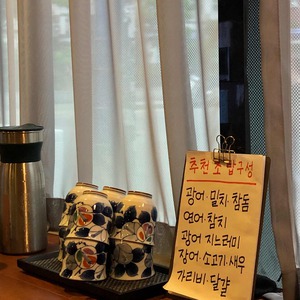 추천 조합구성
광어·밀치·참돔
연어·참치
광어 지느러미
장어·소고기·새우
가리비·달걀